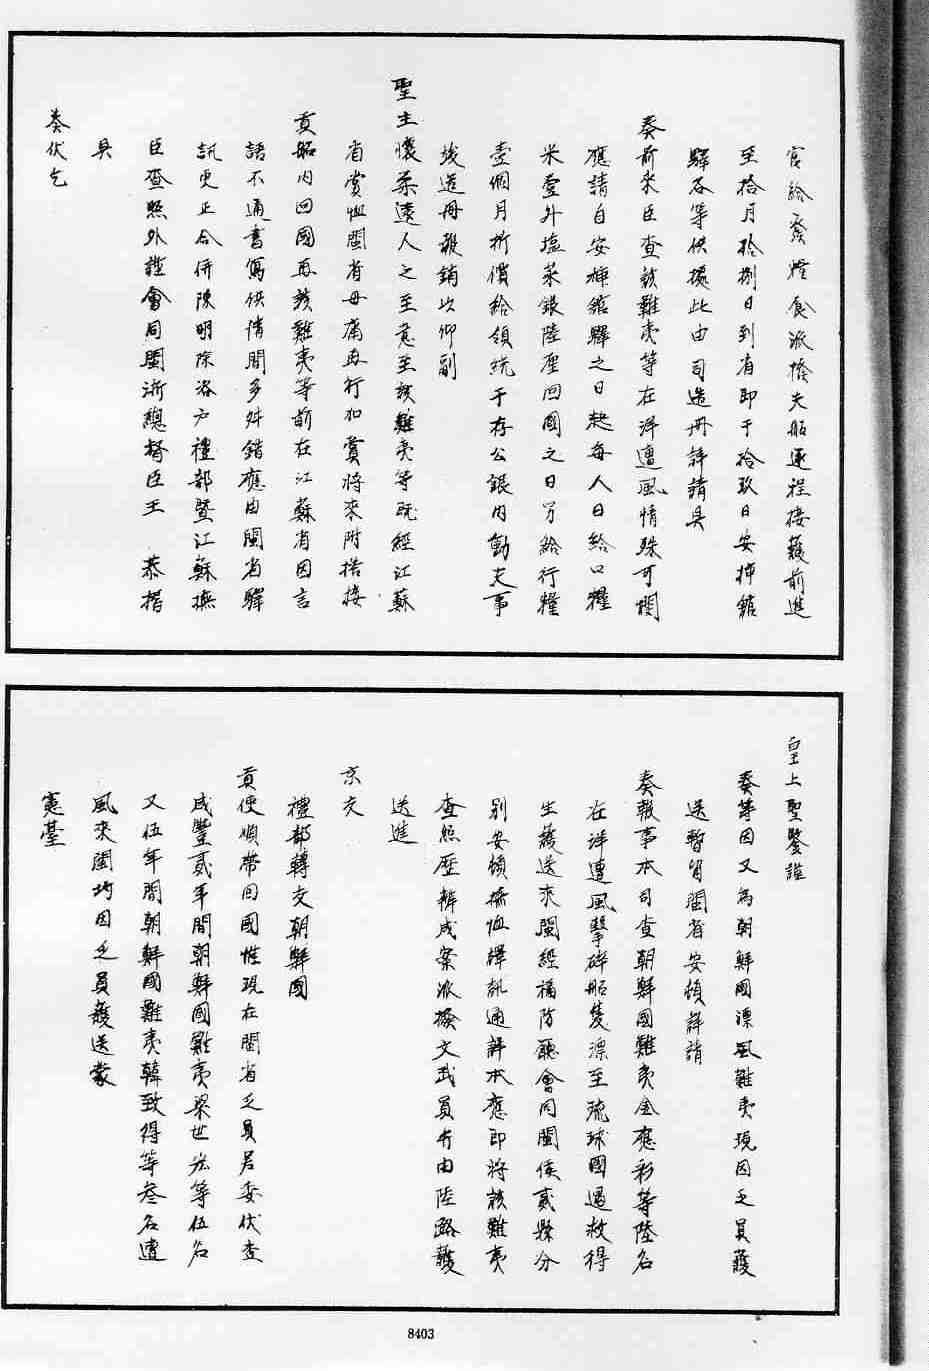 官給廩燈食派撥夫船逐程接護前進
至拾月拾捌日到省即于拾玖日安揷館
驛各等供據此由司造冊詳請具
奏前來臣查該難夷等在洋遭風情殊可憫
應請自安揷館驛之日起每人日給口糧
米壹升塩菜銀陸厘回國之日另給行糧
壹個月折價給領統于存公銀內動支事
竣造冊報銷以仰副
聖主懷柔遠人之至意至該難夷等既經江蘇
省賞恤閩省毋庸再行加賞將來附搭接
貢船內回國再該難夷等前在江蘇省因言
語不通書寫供情間多舛錯應由閩省驛
訊更正合併陳明除咨戶禮部暨江蘇撫
臣查照外謹會同閩浙總督臣王　恭摺
具
奏伏乞
皇上聖鑒謹
奏等因又為朝鮮國漂風難夷現因乏員護
送暫留閩省安頓詳請
奏報事本司查朝鮮國難夷金應彩等陸名
在洋遭風擊碎船隻漂至琉球國遇救得
生護送來閩經福防廳會同閩侯貳縣分
別安頓撫恤繹訊通詳本應即將該難夷
查照歷辦成案派撥文武員弁由陸路護
送進
京交
禮部轉交朝鮮國
貢使順帶回國惟現在閩省乏員差委伏查
咸豐貳年間朝鮮國難夷梁世光等伍名
又伍年間朝鮮國難夷韓致得等叁名遭
風來閩均因乏員護送蒙
憲臺
8403